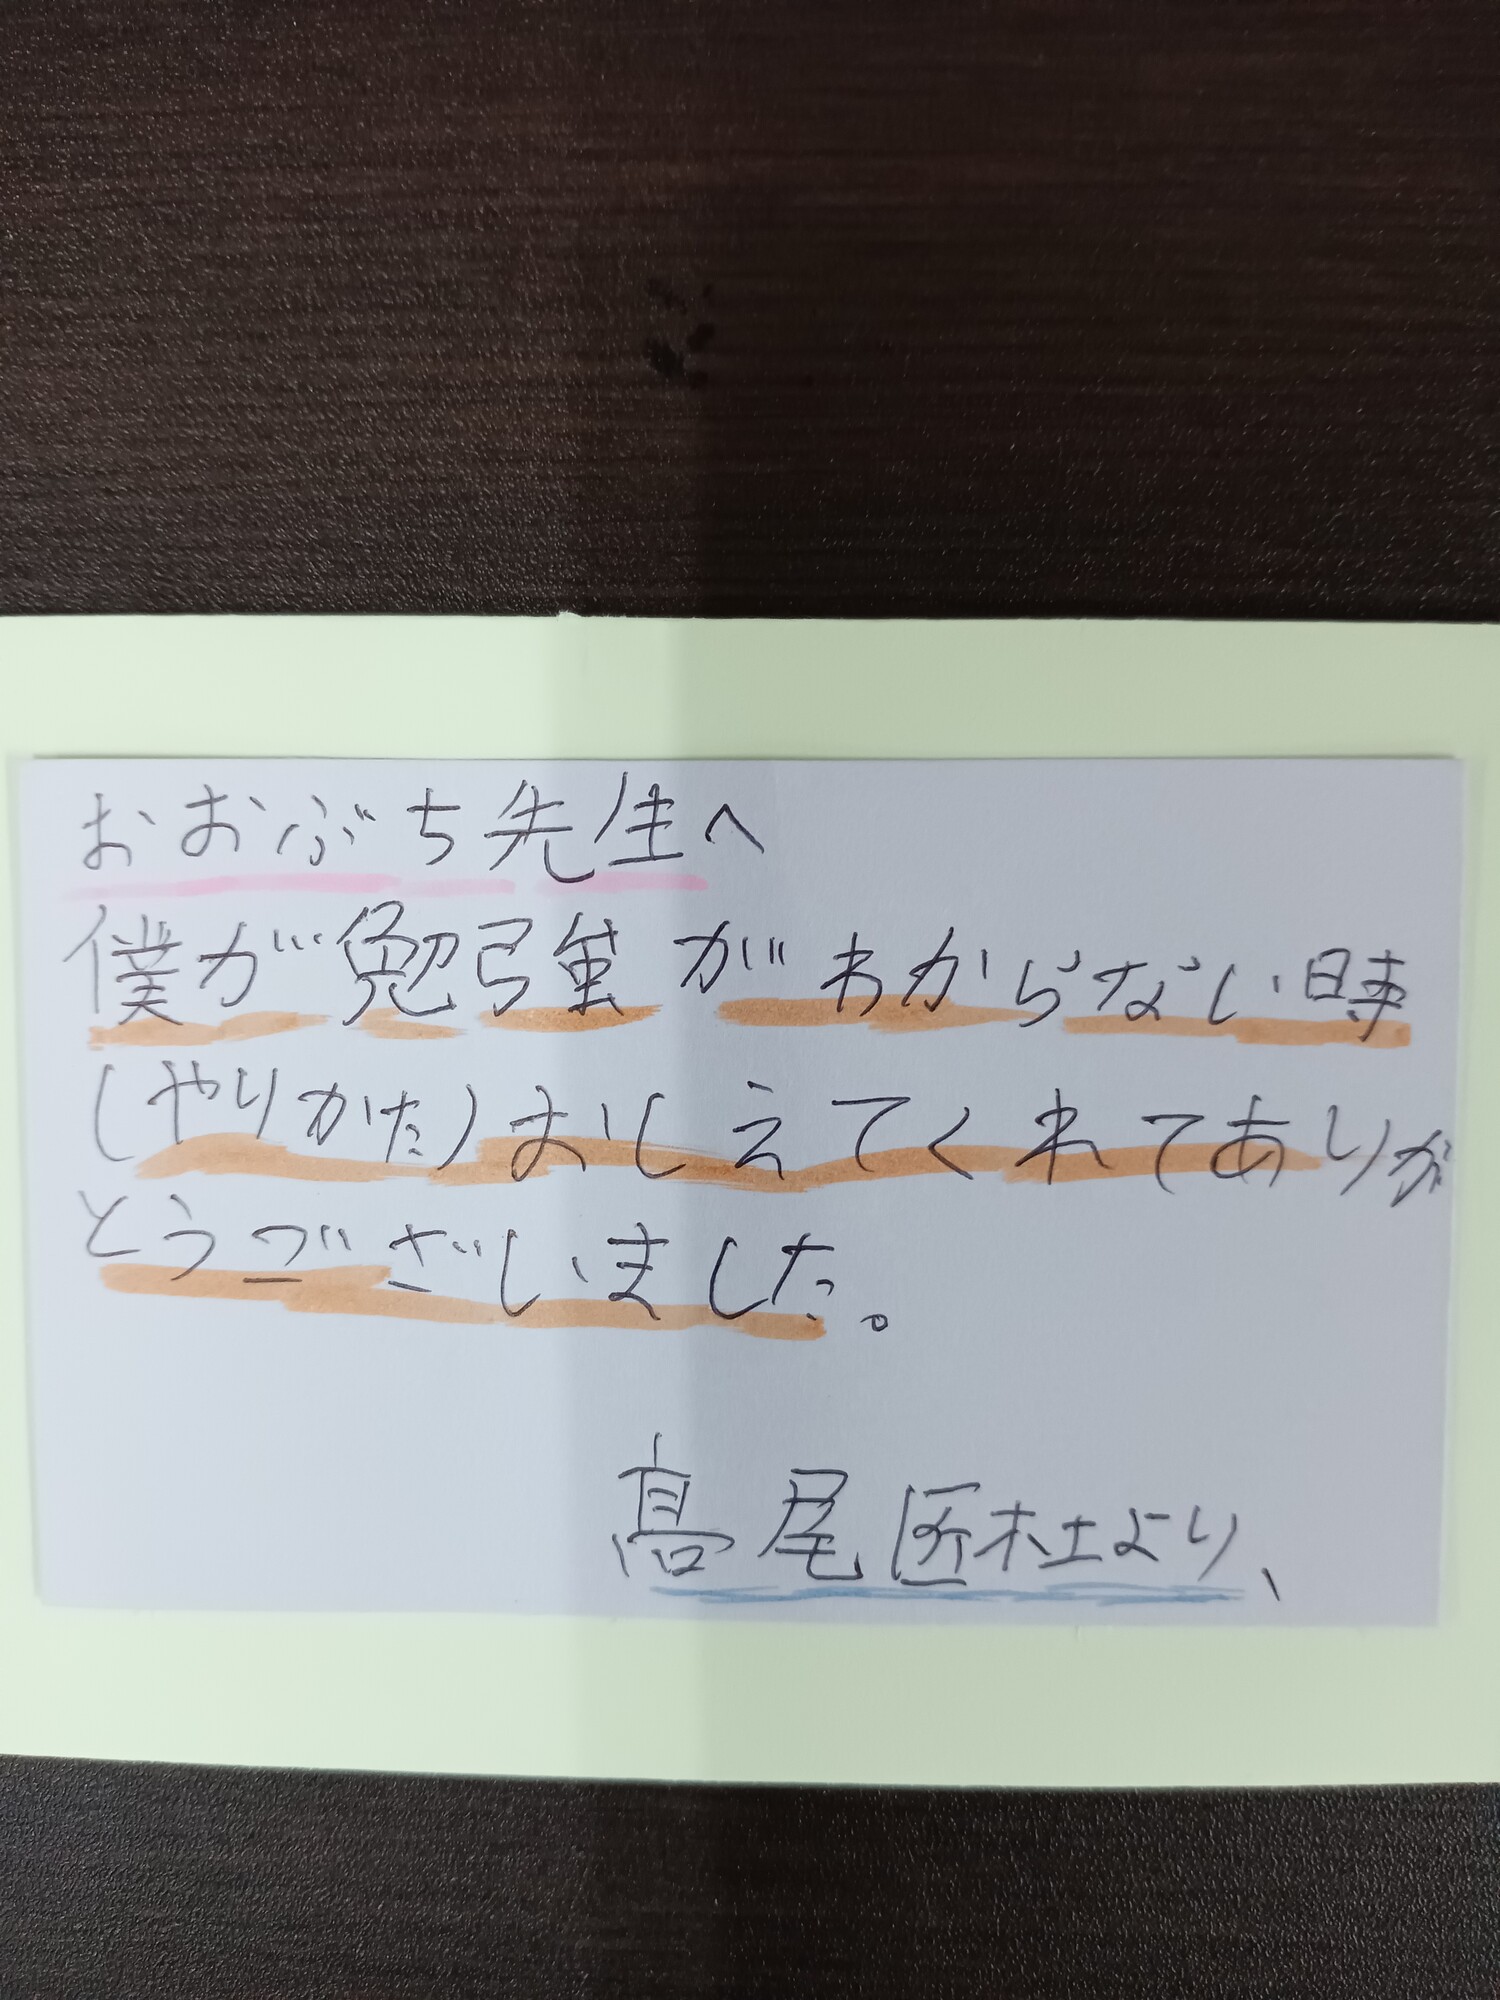 おおぶち先生へ
僕が勉強がわからない時
(やりかた)おしえてくれてありが
とうございました。
髙尾匠杜より、